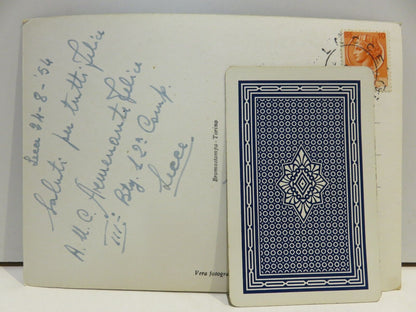 Lecce 24-8-54
Saluti per tutti Felice
A.U.C. Armenante Felice
III° Btg 12a Comp.
Lecce.
Bromostampa - Torino
Vera fotogra